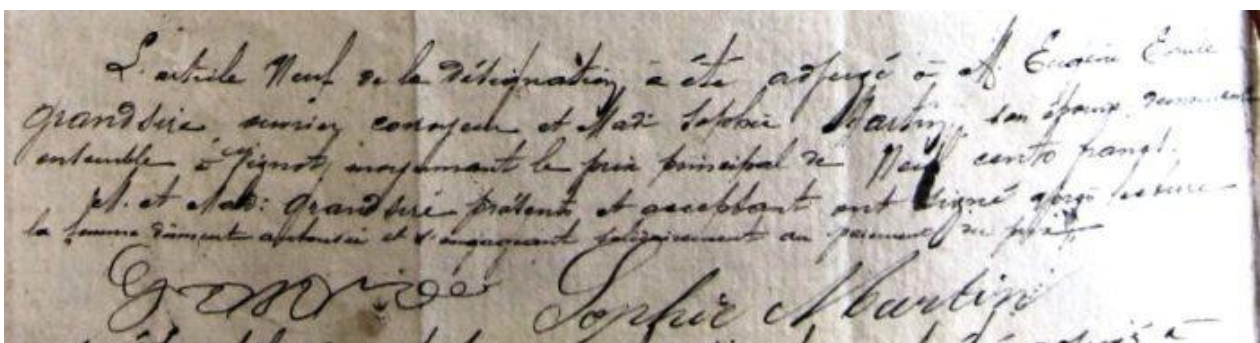 L'article Neuf de la Désignation a été adjugé à M. Eugène Emile
Grandsire, ouvrier corroyeur et Made Sophie Martin, son épouse, demeurant
ensemble à Vignot, moyennant le prix principal de Neuf cents francs.
M. et Made Grandsire présents et acceptant ont signé après lecture
la femme dûment autorisée et s'engageant solidairement au paiement du prix
Sophie Martin